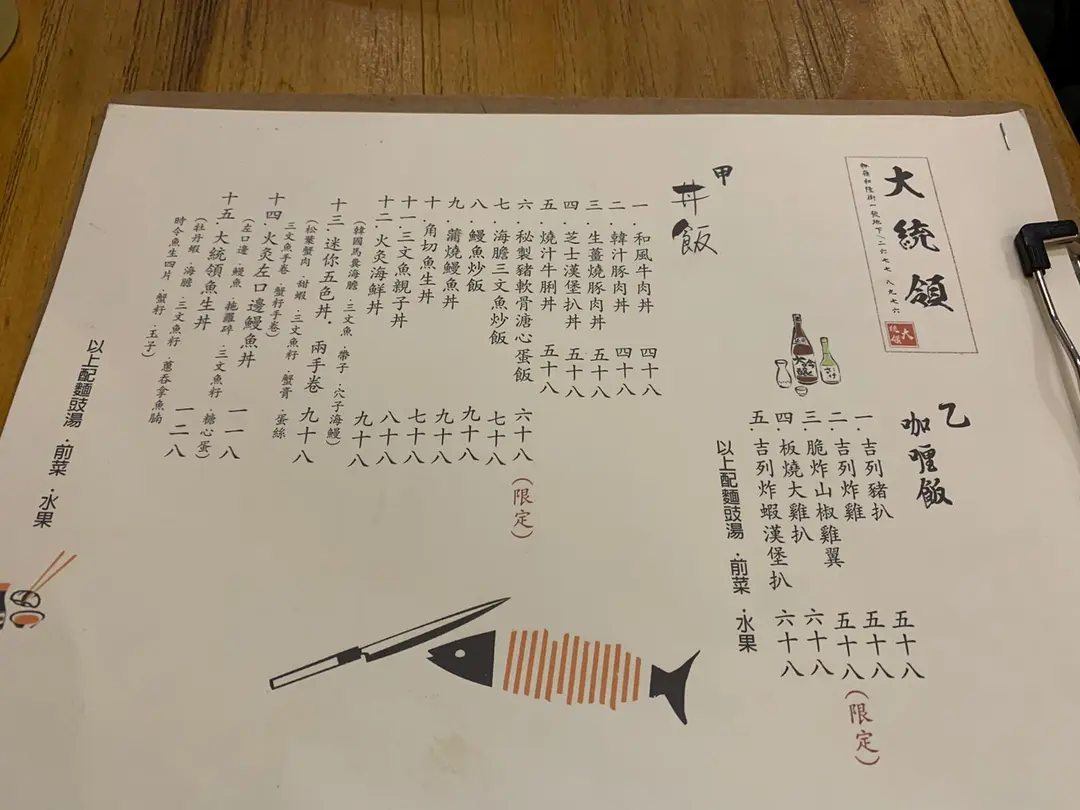 大統領
粉嶺和隆街一號地下 · 二六七七 八九七六
大統領
大吟釀
甲
丼飯
一．和風牛肉丼 四十八
二．韓汁豚肉丼 四十八
三．生薑燒豚肉丼 五十八
四．芝士漢堡扒丼 五十八
五．燒汁牛脷丼 五十八
六．秘製豬軟骨溏心蛋飯 六十八（限定）
七．海膽三文魚炒飯 七十八
八．鰻魚炒飯 九十八
九．蒲燒鰻魚丼 九十八
十．角切魚生丼 七十八
十一．三文魚親子丼 八十八
十二．火灸海鮮丼 九十八
（韓國馬糞海膽．三文魚．帶子．穴子海鰻）
十三．迷你五色丼．兩手卷 九十八
（松葉蟹肉．甜蝦．三文魚籽．蟹膏．蛋絲
三文魚手卷．蟹籽手卷）
十四．火灸左口邊鰻魚丼 一一八
（左口邊．鰻魚．拖羅碎．三文魚籽．糖心蛋）
十五．大統領魚生丼 一二八
（牡丹蝦．海膽．三文魚籽．蔥吞拿魚腩
時令魚生四片．蟹籽．玉子）
以上配麵豉湯．前菜．水果
乙
咖喱飯
一．吉列豬扒 五十八
二．吉列炸雞 五十八
三．脆炸山椒雞翼 五十八（限定）
四．板燒大雞扒 六十八
五．吉列炸蝦漢堡扒 六十八
以上配麵豉湯．前菜．水果